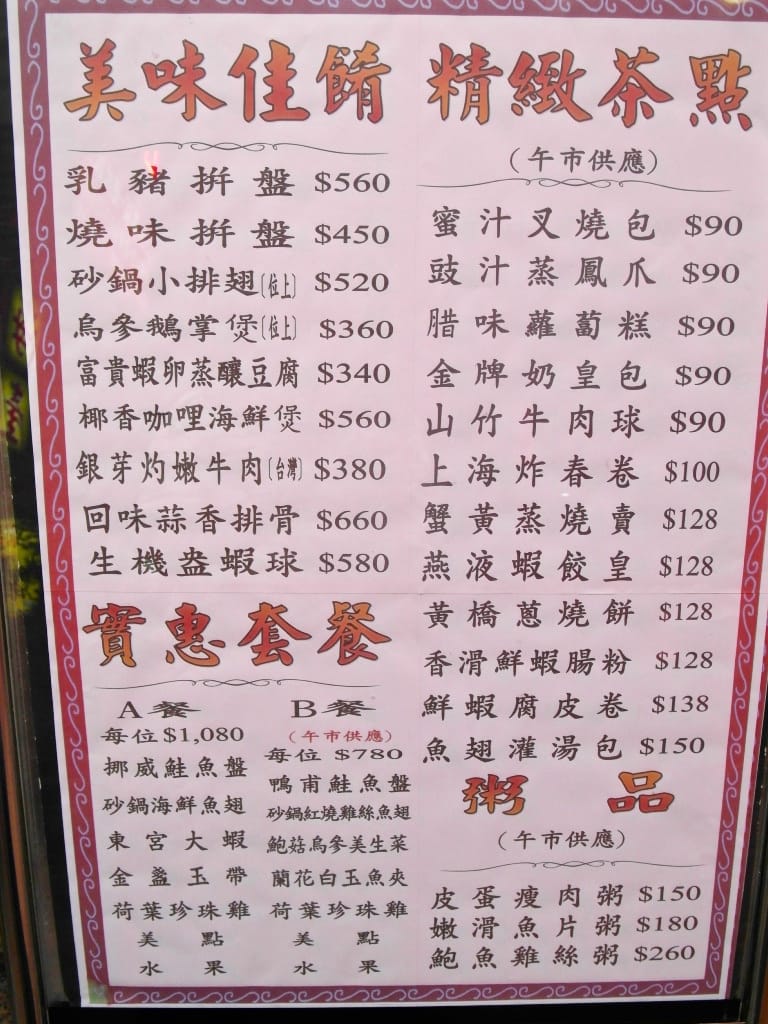 美味佳餚
乳豬拼盤 $560
燒味拼盤 $450
砂鍋小排翅(位上) $520
烏參鵝掌煲(位上) $360
富貴蝦卵蒸釀豆腐 $340
椰香咖哩海鮮煲 $560
銀芽灼嫩牛肉(台灣) $380
回味蒜香排骨 $660
生機盎蝦球 $580
實惠套餐
A餐
每位$1,080
挪威鮭魚盤
砂鍋海鮮魚翅
東宮大蝦
金盞玉帶
荷葉珍珠雞
美點
水果
B餐
(午市供應)
每位 $780
鴨甫鮭魚盤
砂鍋紅燒雞絲魚翅
鮑菇烏參美生菜
蘭花白玉魚夾
荷葉珍珠雞
美點
水果
精緻茶點
(午市供應)
蜜汁叉燒包 $90
豉汁蒸鳳爪 $90
腊味蘿蔔糕 $90
金牌奶皇包 $90
山竹牛肉球 $90
上海炸春卷 $100
蟹黃蒸燒賣 $128
燕液蝦餃皇 $128
黃橋蔥燒餅 $128
香滑鮮蝦腸粉 $128
鮮蝦腐皮卷 $138
魚翅灌湯包 $150
粥品
(午市供應)
皮蛋瘦肉粥 $150
嫩滑魚片粥 $180
鮑魚雞絲粥 $260